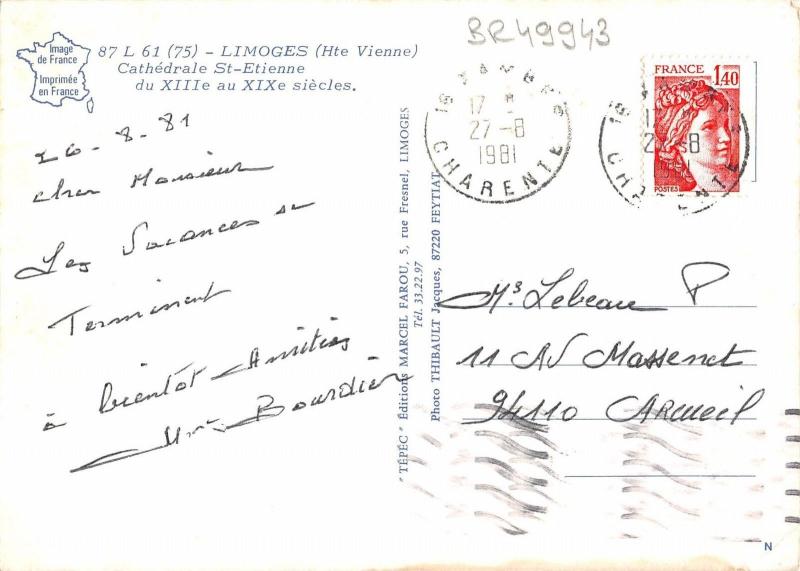 BR49943
Image
de France
Imprimée
en France
87 L 61 (75) - LIMOGES (Hte Vienne)
Cathédrale St-Etienne
du XIIIe au XIXe siècles.
26-8-81
cher Monsieur
Les Vacances se
Terminent
à bientôt Amitiés
Bourdier
"TÉPÉC" Éditions MARCEL FAROU, 5, rue Fresnel, LIMOGES
Tél. 33.22.97
Photo THIBAULT Jacques, 87220 FEYTIAT
17
27-8
1981
CHARENTE
FRANCE
1,40
POSTES
27-8
CHARENTE
Lebeau P
11 AV Massenet
94110 Arcueil
N